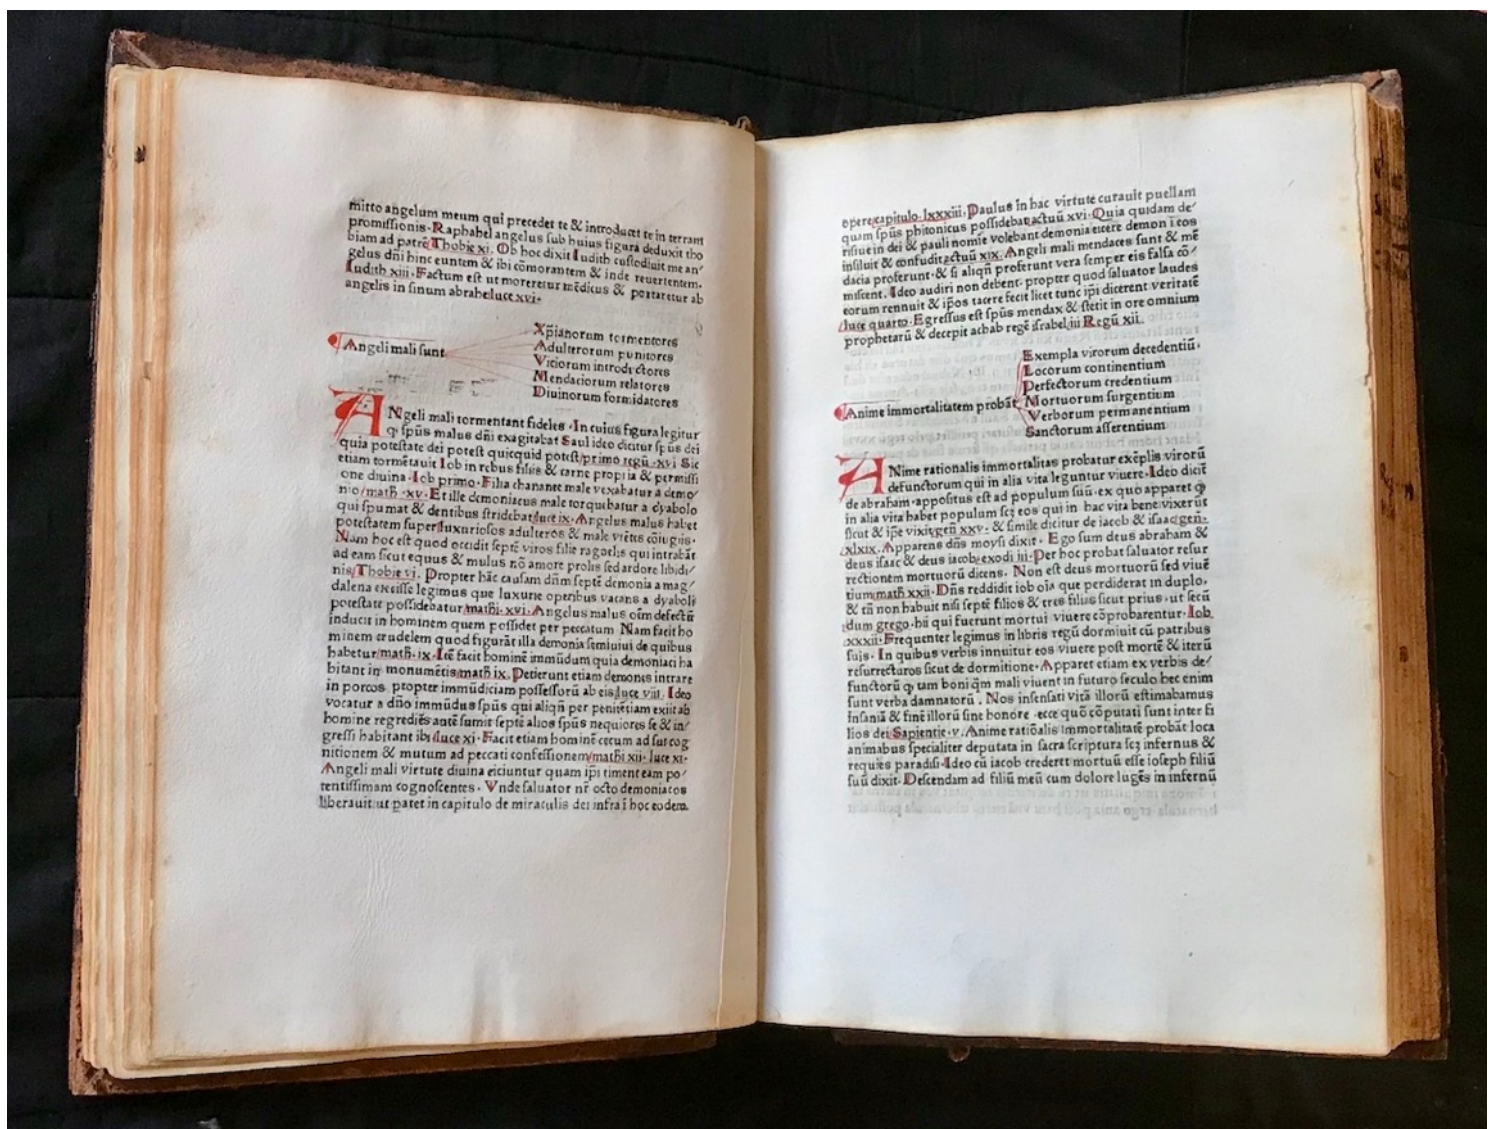 mitto angelum meum qui precedet te & introducet te in terram
promissionis · Raphahel angelus sub huius figura deduxit tho
biam ad patrē Thobie xi. Ob hoc dixit Iudith custodiuit me an/
gelus dñi hinc euntem & ibi cōmorantem & inde reuertentem.
Iudith xiii · Factum est ut moreretur mēdicus & portaretur ab
angelis in sinum abrahe luce xvi·
Angeli mali sunt
Xp̄ianorum tormentores
Adulterorum punitores
Viciorum introductores
Mendaciorum relatores
Diuinorum formidatores
ANgeli mali tormentant fideles · In cuius figura legitur
q spūs malus dñi exagitabat Saul ideo dicitur spūs dei
quia potestate dei potest quicquid potest/primo regū ·xvi Sic
etiam tormētauit Iob in rebus filiis & carne propria & permissi
one diuina · Iob primo · Filia chananee male vexabatur a demo/
nio/math ·xv· Et ille demoniacus male torquebatur a dyabolo
qui spumat & dentibus stridebat luce ix · Angelus malus habet
potestatem super luxuriosos adulteros & male vtētes cōiugiis ·
Nam hoc est quod occidit septē viros filie raguelis qui intrabāt
ad eam sicut equus & mulus nō amore prolis sed ardore libidi/
nis/Thobie vi. Propter hāc causam dñm septē demonia a mag/
dalena eiecisse legimus que luxurie operibus vacans a dyaboli
potestate possidebatur/mathi·xvi· Angelus malus oīm defectū
inducit in hominem quem possidet per peccatum Nam facit ho
minem crudelem quod figurāt illa demonia semiuiui de quibus
habetur/math · ix · Itē facit hominē immūdum quia demoniaci ha
bitant in monumētis/math ix. Petierunt etiam demones intrare
in porcos propter immūdiciam possessorū ab eis luce viii. Ideo
vocatur a dño immūdus spūs qui aliqñ per penitētiam exiit ab
homine regrediēs autē sumit septē alios spūs nequiores se & in/
gressi habitant ibi luce xi · Facit etiam hominē cecum ad sui cog
nitionem & mutum ad peccati confessionem/mathi xii· luce xi·
Angeli mali virtute diuina eiciuntur quam ip̄i timent eam po/
tentissimam cognoscentes · Vnde saluator nr̄ octo demoniacos
liberauit ut patet in capitulo de miraculis dei infra ī hoc eodem
opere capitulo· lxxxiii · Paulus in hac virtute curauit puellam
quam spūs phitonicus possidebat actuū xvi · Quia quidam de/
risiue in dei & pauli nomīe volebant demonia eicere demon ī eos
insiluit & confudit actuū xix. Angeli mali mendaces sunt & mē
dacia proferunt · & si aliqñ proferunt vera semper eis falsa cō/
miscent. Ideo audiri non debent · propter quod saluator laudes
eorum rennuit & ip̄os tacere fecit licet tunc ip̄i dicerent veritatē
/luce quarto · Egressus est spūs mendax & stetit in ore omnium
prophetarū & decepit achab regē israhel iii Regū xii.
Anime immortalitatem probāt
Exempla virorum decedentiū·
Locorum continentium
Perfectorum credentium
Mortuorum surgentium
Verborum permanentium
Sanctorum asserentium
ANime rationalis immortalitas probatur exēplis virorū
defunctorum qui in alia vita leguntur viuere · Ideo dicit̄
de abraham · appositus est ad populum suū · ex quo apparet ꝙ
in alia vita habet populum scꝫ eos qui in hac vita bene vixerūt
sicut & ip̄e vixit/gen̄ xxv· & simile dicitur de iacob & isaac/gen̄·
·xlix · Apparens dñs moysi dixit · Ego sum deus abraham &
deus isaac & deus iacob/exodi iii· Per hoc probat saluator resur
rectionem mortuorū dicens · Non est deus mortuorū sed viuē
tium math xxii· Dñs reddidit iob oīa que perdiderat in duplo.
& tñ non habuit nisi septē filios & tres filias sicut prius · ut secū
dum grego· hii qui fuerunt mortui viuere cōprobarentur · Iob
xxxii · Frequenter legimus in libris regū dormiuit cū patribus
suis · In quibus verbis innuitur eos viuere post mortē & iterū
resurrecturos sicut de dormitione · Apparet etiam ex verbis de/
functorū ꝙ tam boni q̄m mali viuent in futuro seculo hec enim
sunt verba damnatorū . Nos insensati vitā illorū estimabamus
insaniā & finē illorū sine honore · ecce quō cōputati sunt inter fi
lios dei Sapientie · v. Anime ratiōalis immortalitatē probāt loca
animabus specialiter deputata in sacra scriptura scꝫ infernus &
requies paradisi · Ideo cū iacob crederet mortuū esse ioseph filiū
suū dixit · Descendam ad filiū meū cum dolore lugēs in infernū